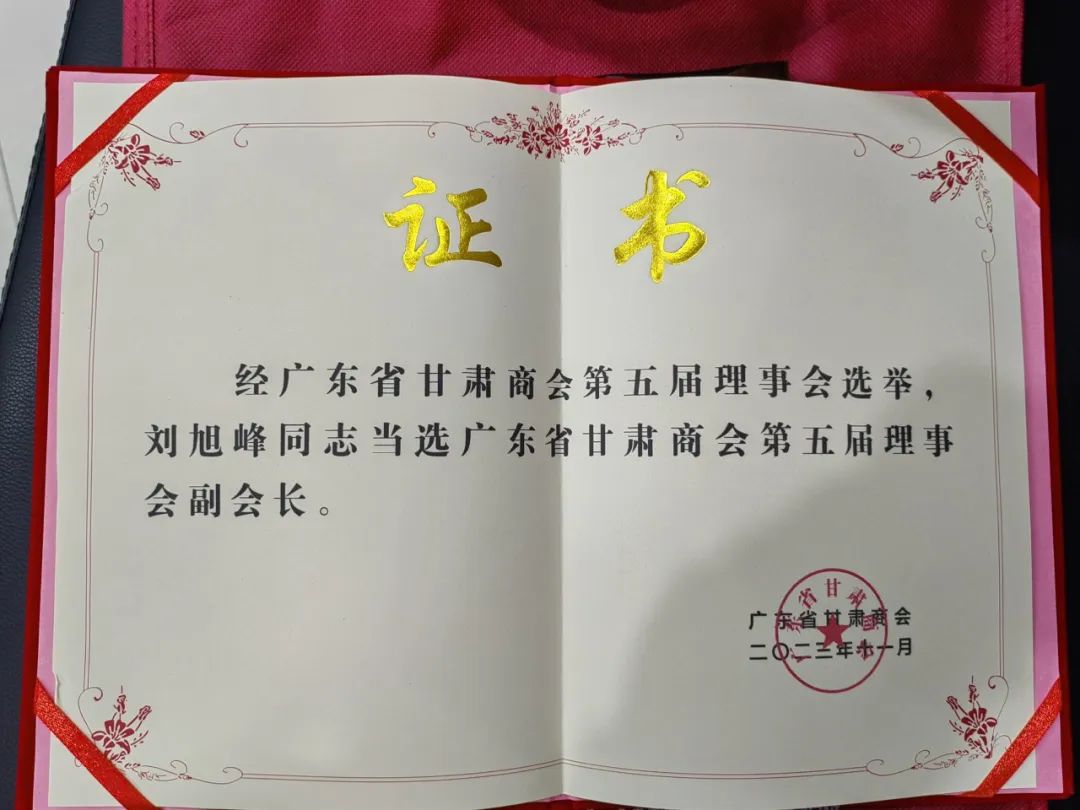 证 书
经广东省甘肃商会第五届理事会选举，
刘旭峰同志当选广东省甘肃商会第五届理事
会副会长。
广东省甘肃商会
二〇二三年十一月
广东省甘肃商会